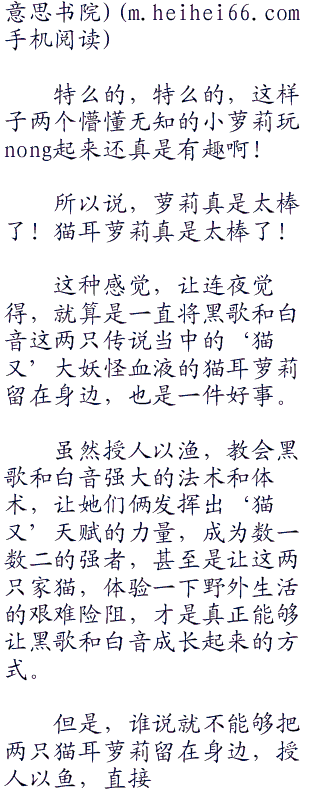 意思书院)(m.heihei66.com
手机阅读)
特么的，特么的，这样
子两个懵懂无知的小萝莉玩
nong起来还真是有趣啊！
所以说，萝莉真是太棒
了！猫耳萝莉真是太棒了！
这种感觉，让连夜觉
得，就算是一直将黑歌和白
音这两只传说当中的‘猫
又’大妖怪血液的猫耳萝莉
留在身边，也是一件好事。
虽然授人以渔，教会黑
歌和白音强大的法术和体
术，让她们俩发挥出‘猫
又’天赋的力量，成为数一
数二的强者，甚至是让这两
只家猫，体验一下野外生活
的艰难险阻，才是真正能够
让黑歌和白音成长起来的方
式。
但是，谁说就不能够把
两只猫耳萝莉留在身边，授
人以鱼，直接